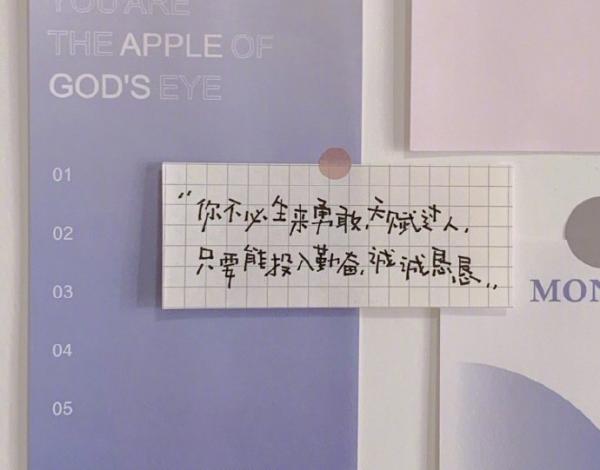 YOU ARE
THE APPLE OF
GOD'S EYE
01
02
03
04
05
“你不必生来勇敢,天赋过人,
只要能投入勤奋,诚诚恳恳”
MON